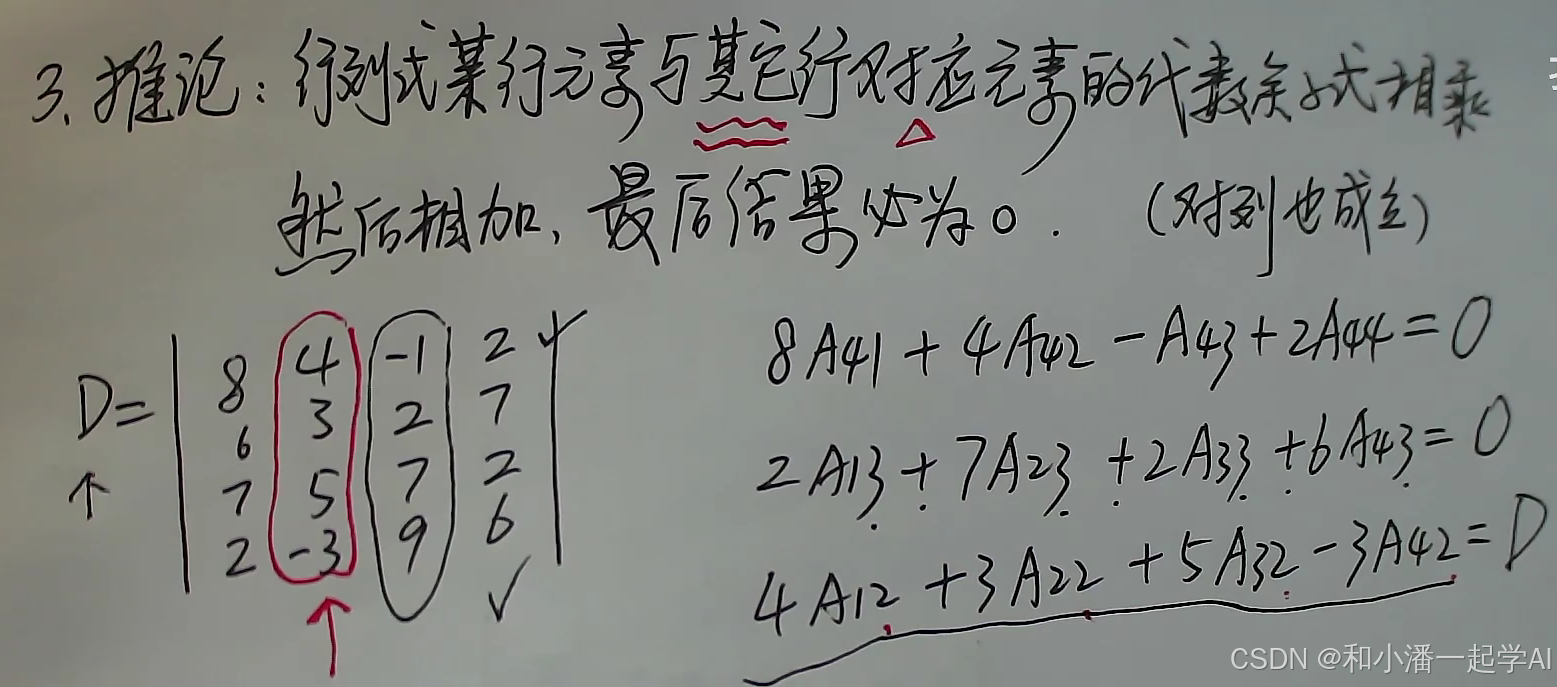 3. 推论：行列式某行元素与其它行对应元素的代数余子式相乘
然后相加，最后结果必为0. （对列也成立）
8 4 -1 2
D= 6 3 2 7
7 5 7 2
2 -3 9 6
8A41 + 4A42 - A43 + 2A44 = 0
2A13 + 7A23 + 2A33 + 6A43 = 0
4A12 + 3A22 + 5A32 - 3A42 = D
CSDN @和小潘一起学AI